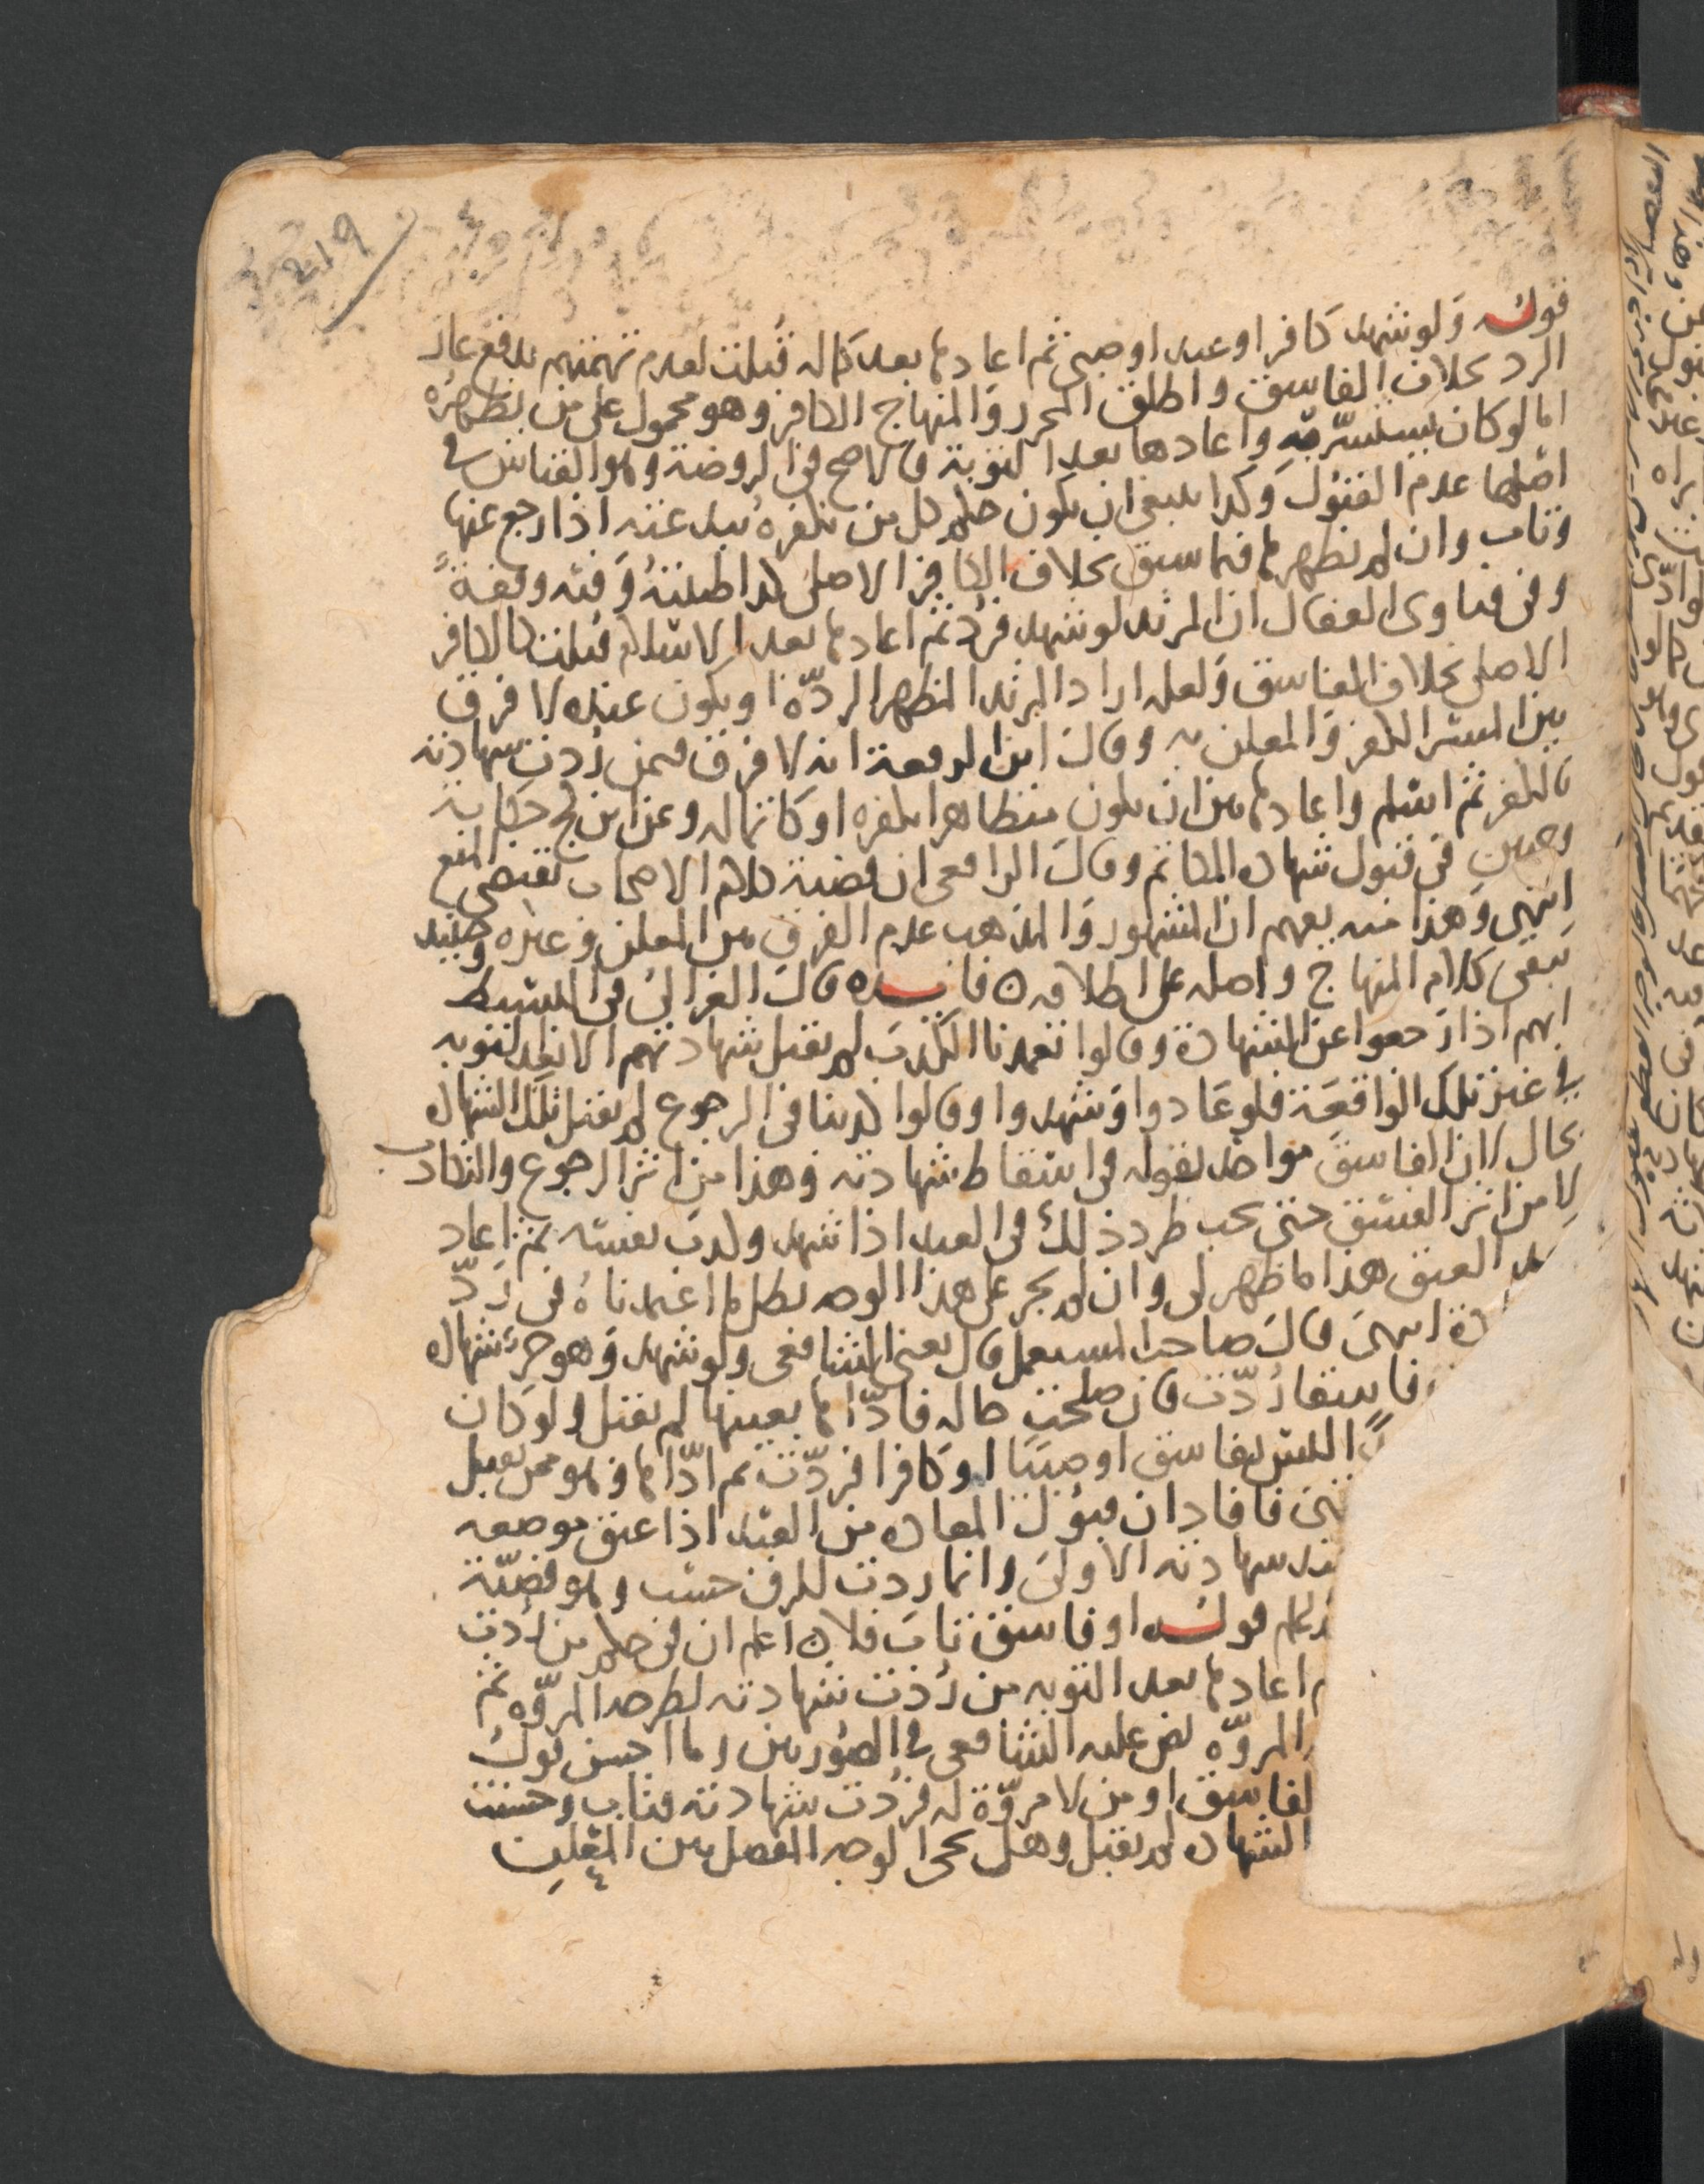 219
قوله ولو شهد كافر او عبد او صبي ثم اعادها بعد كماله قبلت لعدم تهمتهم بدفع عار
الرد بخلاف الفاسق واطلق المحرر والمنهاج الكافر وهو محمول على من يظهره
اما لو كان يستسرّ به واعادها بعد التوبة فالاصح في الروضة وهو القياس في
اصلها عدم القبول وكذا ينبغي ان يكون حكم كل من نكفره ببدعته اذا رجع عنها
وتاب وان لم نظهرها فيما سبق بخلاف الكافر الاصلي كذا ظننته وفيه وقفة
وفي فتاوى القفال ان المرتد لو شهد فرد ثم اعادها بعد الاسلام قبلت كالكافر
الاصلي بخلاف الفاسق ولعله اراد المرتد المظهر الردّة او يكون عنده لا فرق
بين المسر الكفر والمعلن به وقال ابن الرفعة انه لا فرق فيمن ردت شهادته
بالكفر ثم اسلم واعادها بين ان يكون متظاهرا بكفره او كاتما له وعن ابن كج حكاية
وجهين في قبول شهادة الكاتم وقال الرافعي ان قضية كلام الاصحاب تقتضي المنع
انتهى وهذا منه يفهم ان المشهور والمذهب عدم الفرق بين المعلن وغيره وحينيد
يبقى كلام المنهاج واصله على اطلاقه فايده قال الغزالي في البسيط
انهم اذا رجعوا عن الشهادة وقالوا تعمدنا الكذب لم تقبل شهادتهم الا بعد التوبه
في غير تلك الواقعة فلو عادوا وشهدوا وقالوا كذبنا في الرجوع لم تقبل تلك الشهادة
بحال لان الفاسق مواخذ بقوله في اسقاط شهادته وهذا من اثر الرجوع والتكاذب
لا من اثر الفسق حتى يجب طرد ذلك في العبد اذا شهد وكذب نفسه ثم اعاد
بعد العتق هذا ما ظهر لي وان لم يجر على هذا الوجه بطل ما اعتمدناه في ردّ
ة انتهى قال صاحب قال يعني الشافعي ولو شهد وهو حر شهادة
فاسقا ردّت فان صلحت حاله فادّاها بعينها لم تقبل ولو كان
ليس بفاسق او صبيا او كافرا فردّت ثم ادّاها وهو ممن تقبل
فافاد ان قبول المعادة من العبد اذا عتق موضعه
شهادته الاولى وانما ردت للرق حسب وهو قضيّة
قوله او فاسق تاب فلا اعلم ان في حكم من ردت
اعادها بعد التوبه من ردت شهادته لطرحه المروّه ثم
المروّه نص عليه الشافعي في الصورتين وما احسن قوله
الفاسق او من لا مروّة له فردت شهادته فتاب وحسنت
الشهادة لم تقبل وهل يجئ الوجه المفصل بين المعلن